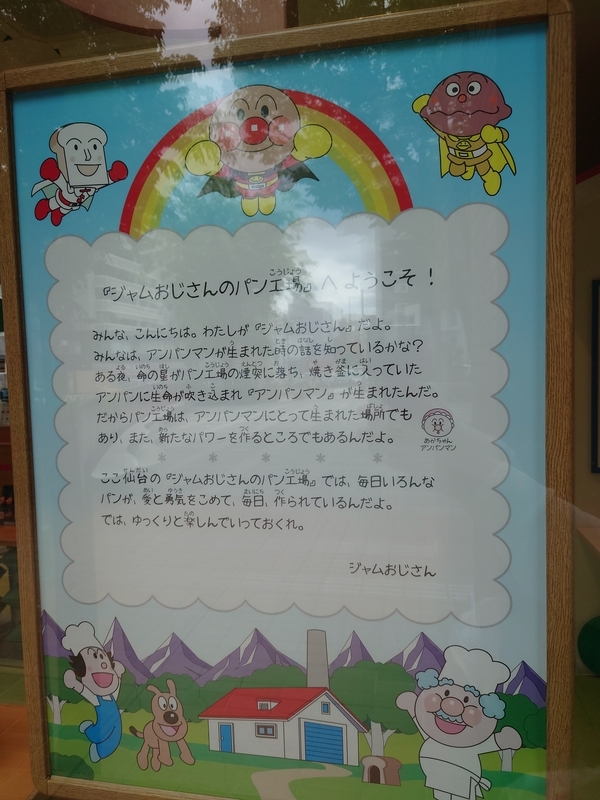 『ジャムおじさんのパン工場』へようこそ！
みんな、こんにちは。わたしが『ジャムおじさん』だよ。
みんなは、アンパンマンが生まれた時の話を知っているかな？
ある夜、命の星がパン工場の煙突に落ち、焼き釜に入っていた
アンパンに生命が吹き込まれ『アンパンマン』が生まれたんだ。
だからパン工場は、アンパンマンにとって生まれた場所でも
あり、また、新たなパワーを作るところでもあるんだよ。
あかちゃん
アンパンマン
＊ ＊ ＊ ＊ ＊
ここ仙台の『ジャムおじさんのパン工場』では、毎日いろんな
パンが、愛と勇気をこめて、毎日、作られているんだよ。
では、ゆっくりと楽しんでいっておくれ。
ジャムおじさん